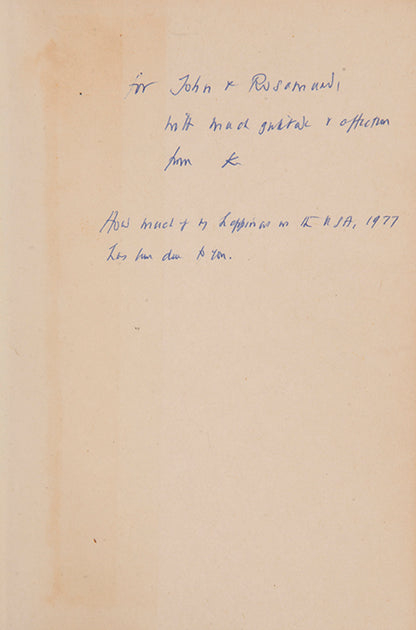 for John & Rosamund,
with much gratitude & affection
from K.
How much of my happiness in the USA, 1977
has been due to you.